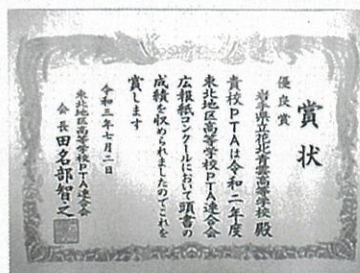 賞状
優良賞
岩手県立花北青雲高等学校殿
貴校PTAは令和二年度
東北地区高等学校PTA連合会
広報紙コンクールにおいて頭書の
成績を収められましたのでこれを
賞します
令和三年七月二日
東北地区高等学校PTA連合会
会長田名部智之